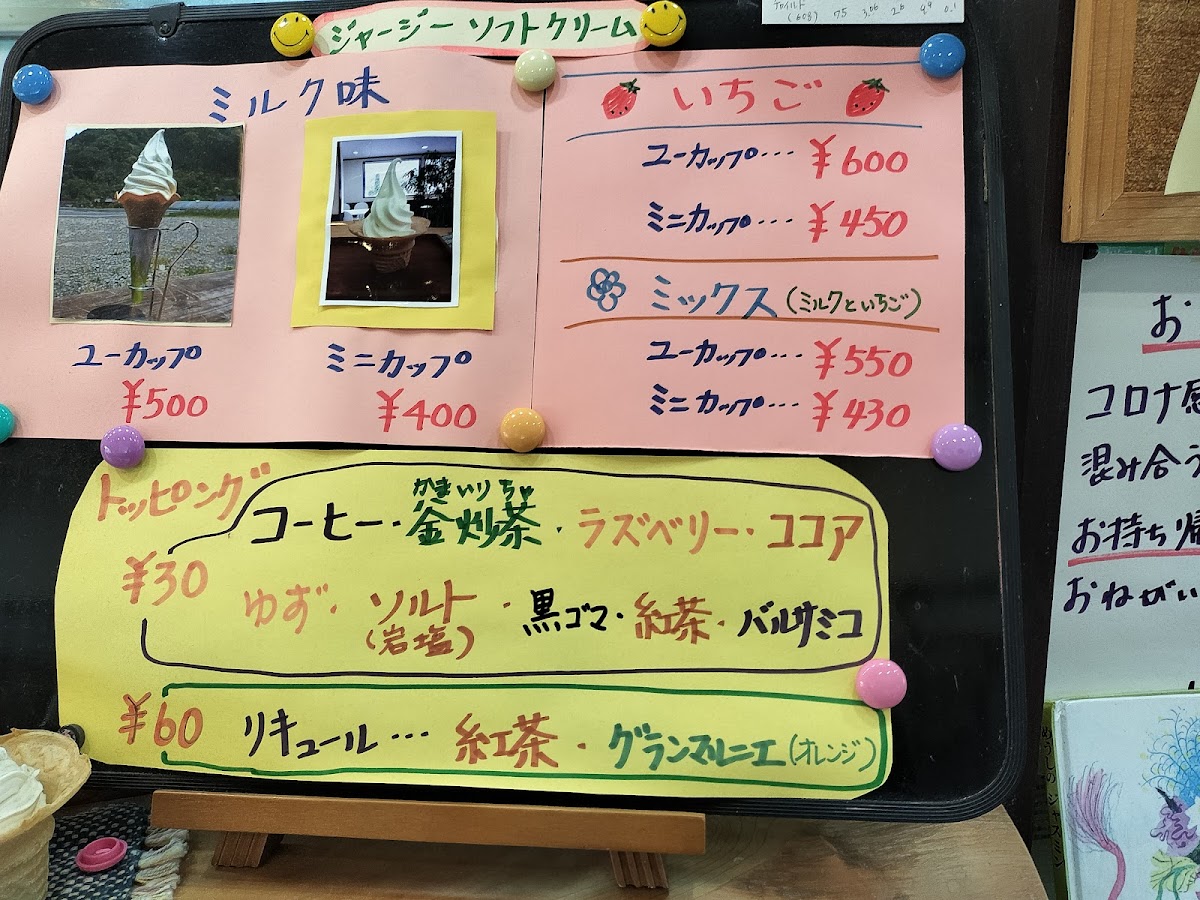 ジャージー ソフトクリーム
ミルク味
ユーカップ
¥500
ミニカップ
¥400
いちご
ユーカップ… ¥600
ミニカップ… ¥450
ミックス (ミルクといちご)
ユーカップ… ¥550
ミニカップ… ¥430
トッピング
¥30
かまいりちゃ
コーヒー・釜炒茶・ラズベリー・ココア
ゆず・ソルト・黒ゴマ・紅茶・バルサミコ
(岩塩)
¥60 リキュール… 紅茶・グランマルニエ(オレンジ)
コロナ
混み合う
お持ち帰
おねがい